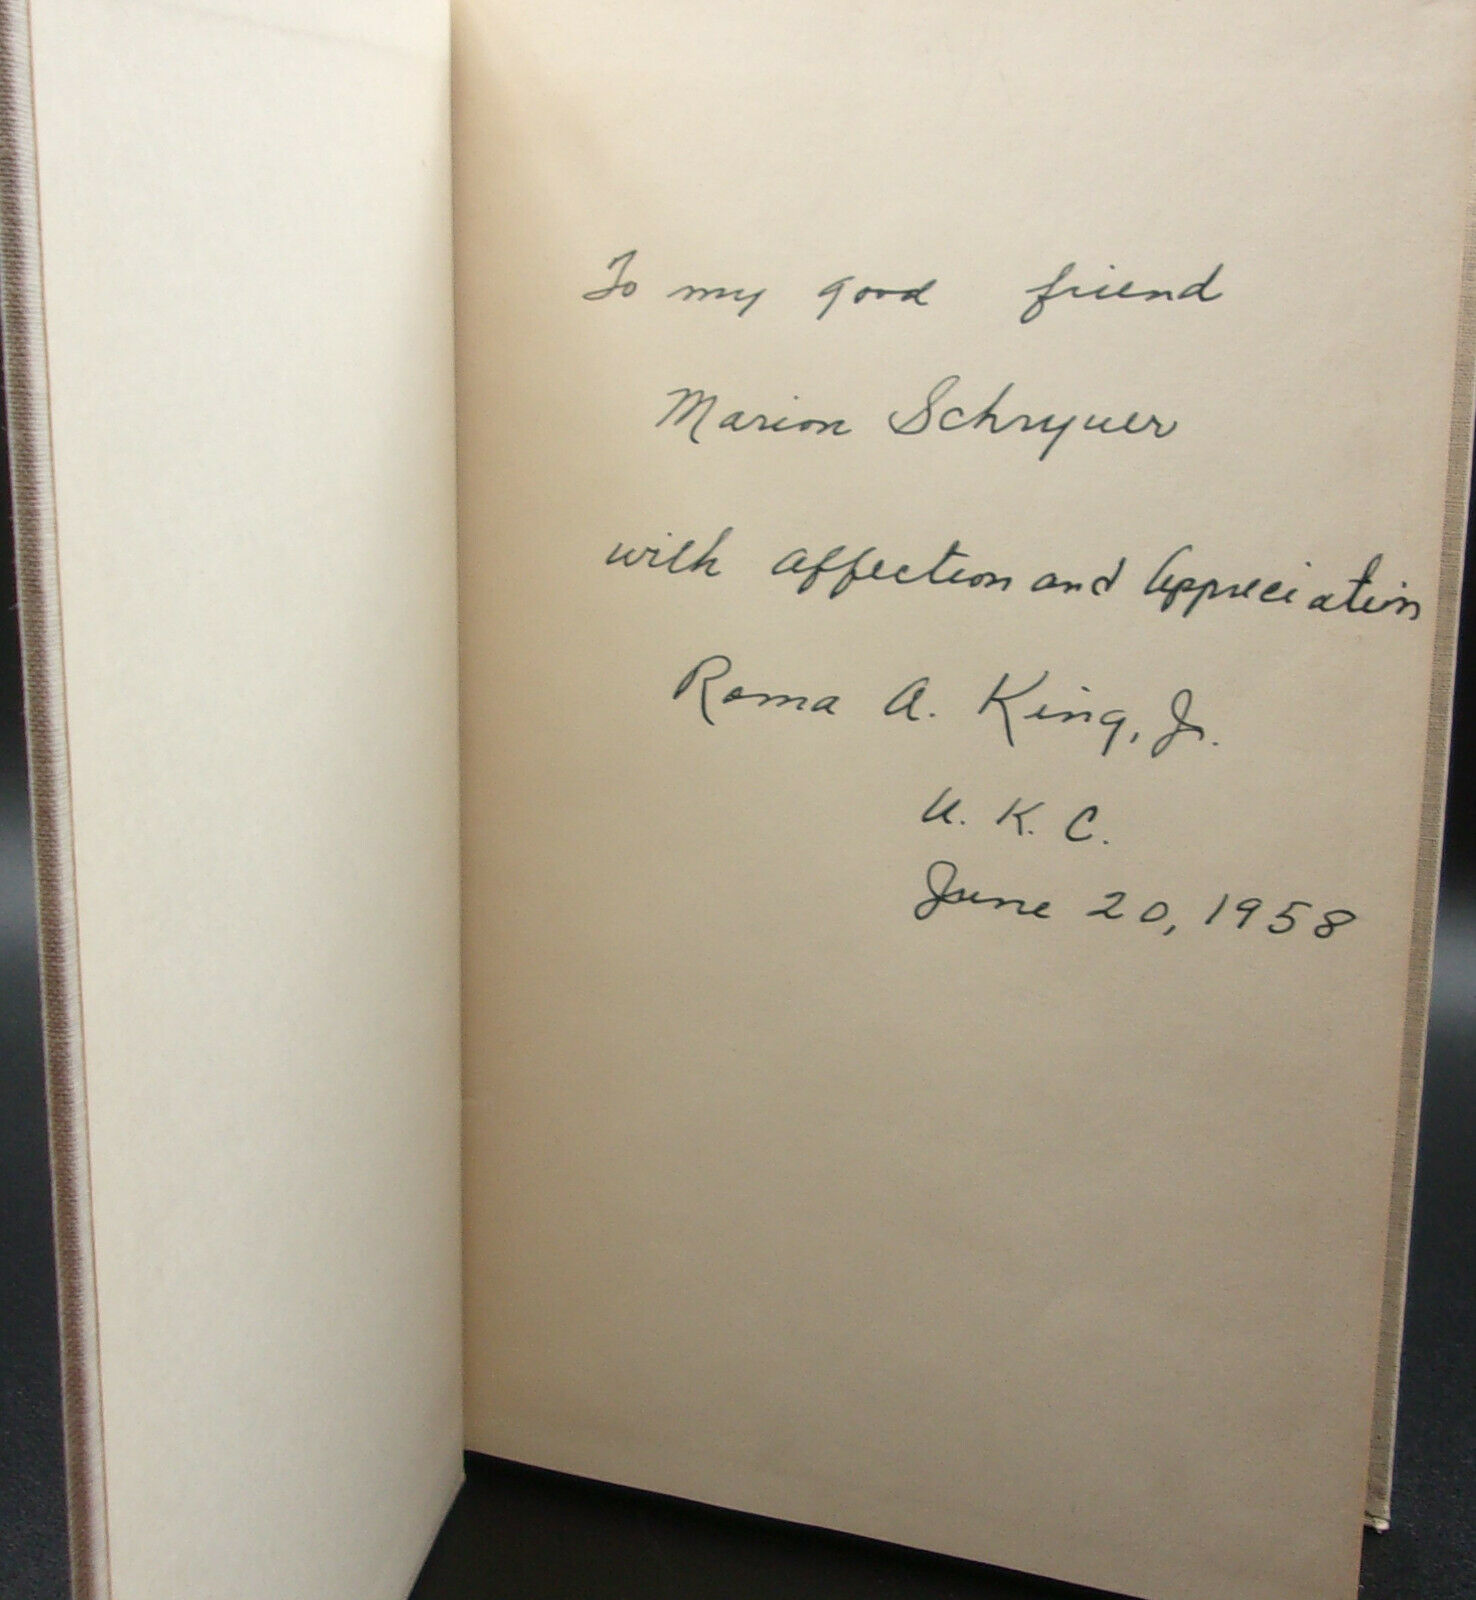 To my good friend
Marion Schryver
with affection and Appreciation
Roma A. King, Jr.
U. K. C.
June 20, 1958